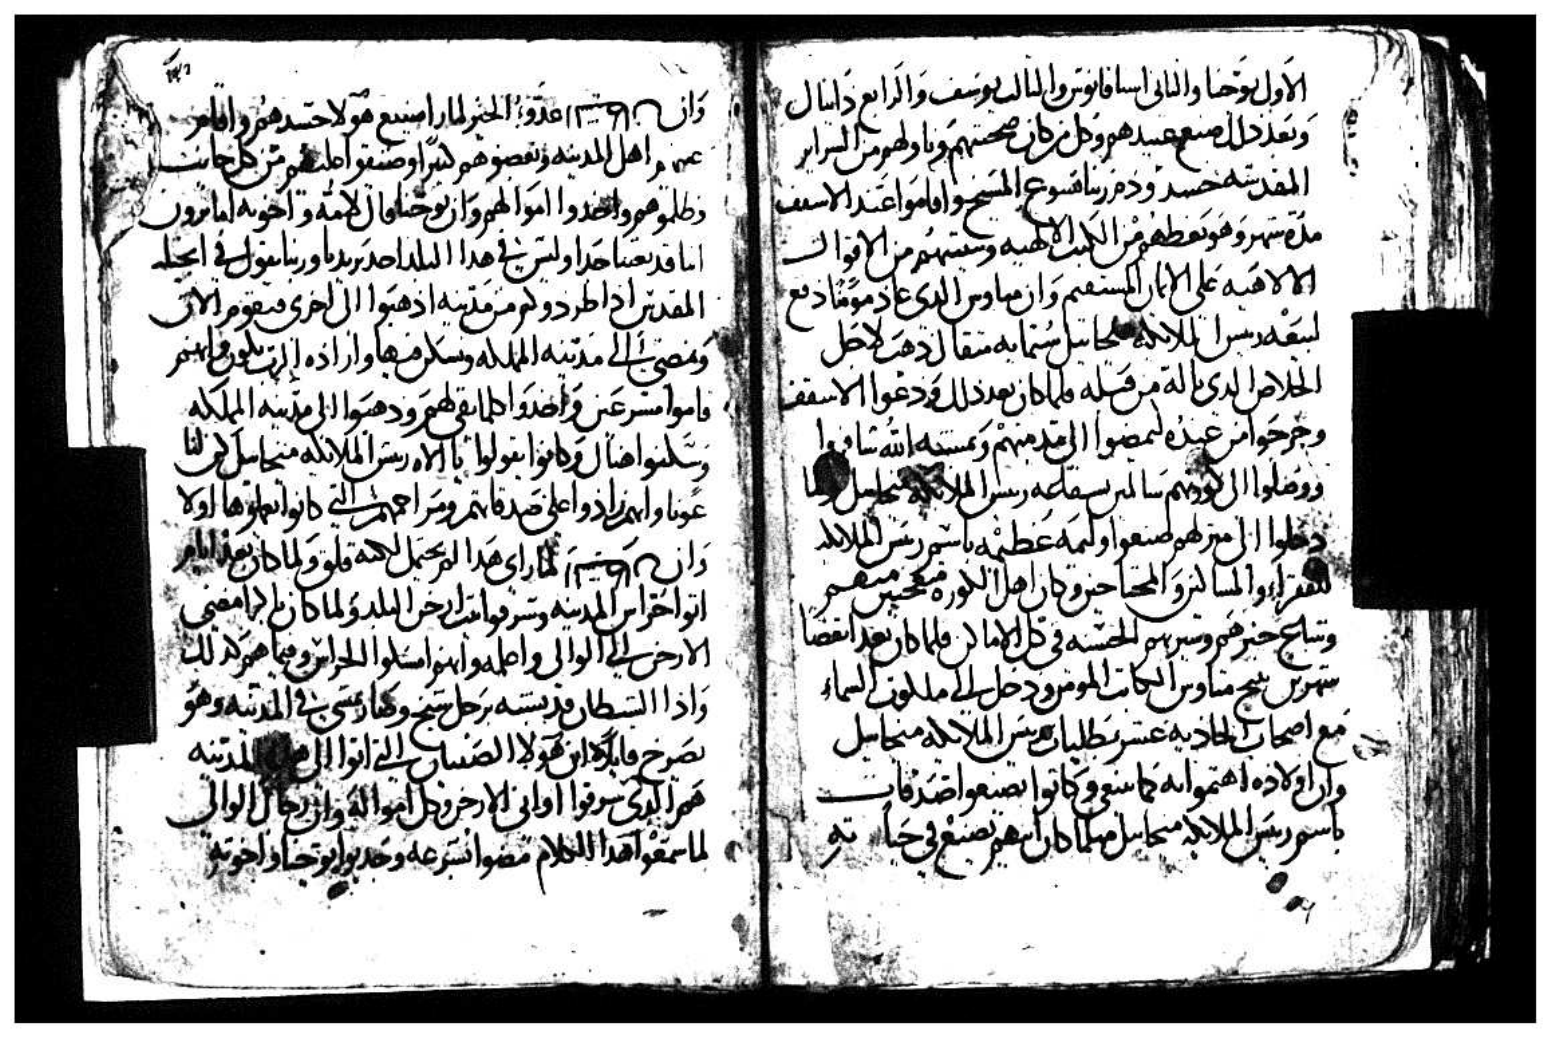 الاول يوحنا والثانى اسافانوس والثالث يوسف والرابع دانيال
وبعد ذلك صنع عبيدهم وكل من كان صحبتهم وناولهم من السراير
المقدسه جسد ودم ربنا يسوع المسيح واقاموا عند الاسقف
مدة شهر وهو يعظهم من الكتب الالهيه وسقيهم من الاقوال
الالاهيه على الايمان المستقيم وان مياوس الدى عاد مومنا دفع
لبيعة ريس الملايكه ميخاييل ستمايه مثقال دهب لاجل
الخلاص الدى ناله من قبله فلما كان بعد ذلك ودعوا الاسقف
وخرجوا من عنده ليمضوا الى مدينتهم وبمشيه الله سافروا
ووصلوا الى كورتهم سالمين بشفاعه ريس الملايكه ميخاييل ولما
دخلوا الى منزلهم صنعوا وليمه عظيمه باسم ريس الملايكه
للفقراء والمساكين والمحتاجين وكان اهل الكوره متعجبين منهم
وشاع خبرهم وسيرتهم الحسنه فى كل الاماكن فلما كان بعد انقضا
شهرين تنيح مياوس الكاتب المومن ودخل الى ملكوت السماء
مع اصحاب الحاديه عشر بطلبات ريس الملايكه ميخاييل
وان اولاده اهتموا به كما ينبغى وكانوا يصنعوا صدقات
باسم ريس الملايكه ميخاييل مثلما كان ابيهم يصنع فى حيا ته
وان عدو الخير لما راى صنيع هولا حسدهم واقام
عليهم اهل المدينه وبغضوهم كثيرا وضيقوا عليهم من كل جانب
وظلموهم واخدوا اموالهم وان يوحنا قال لامه واخوته اما ترون
اننا قد تعبنا جدا وليس فى هدا البلد احد يريدنا وربنا يقول فى انجيله
المقدس اذا طردوكم من مدينه ادهبوا الى اخرى فنقوم الان
ونمضى الى مدينه المملكه ونسكن فيها وارادة الرب تكون وانهم
قاموا مسرعين واخدوا كلما بقى لهم ودهبوا الى مدينه المملكه
وسكنوا هناك وكانوا يقولوا يا الاه ريس الملايكه ميخاييل كن لنا
عونا وانهم زادوا على صدقاتهم ومراحمهم التى كانوا يعملوها اولا
وان لما راى هدا لم يحتمل لكنه قلق ولما كان بعد ايام
اتوا حراس المدينه وسرقوا بيت ارخن البلد ولما كان باكرا مضى
الارخن الى الوالى واعلمه وانهم امسكوا الحراس وفيما هم كدلك
وادا الشيطان قد تشبه برجل شيخ وكان يمشى فى المدينه وهو
يصرخ قايلا ان هولا الصبيان التى اتوا الى هده المدينه
هم الدى سرقوا اوانى الارخن وكل امواله وان رجال الوالى
لما سمعوا هدا الكلام مضوا بسرعه وجدبوا يوحنا واخوته